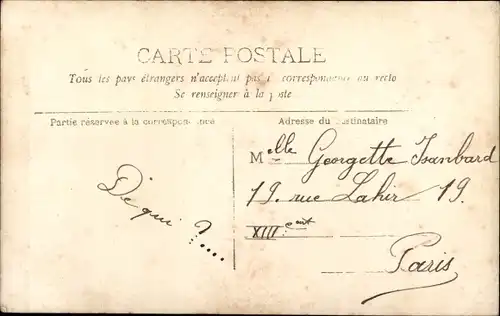 CARTE POSTALE
Tous les pays étrangers n'acceptent pas la correspondance au recto
Se renseigner à la poste
Partie réservée à la correspondance
Adresse du destinataire
De qui ?....
Melle Georgette Isanbard
19. rue Lahir 19.
XIIIe ent
Paris